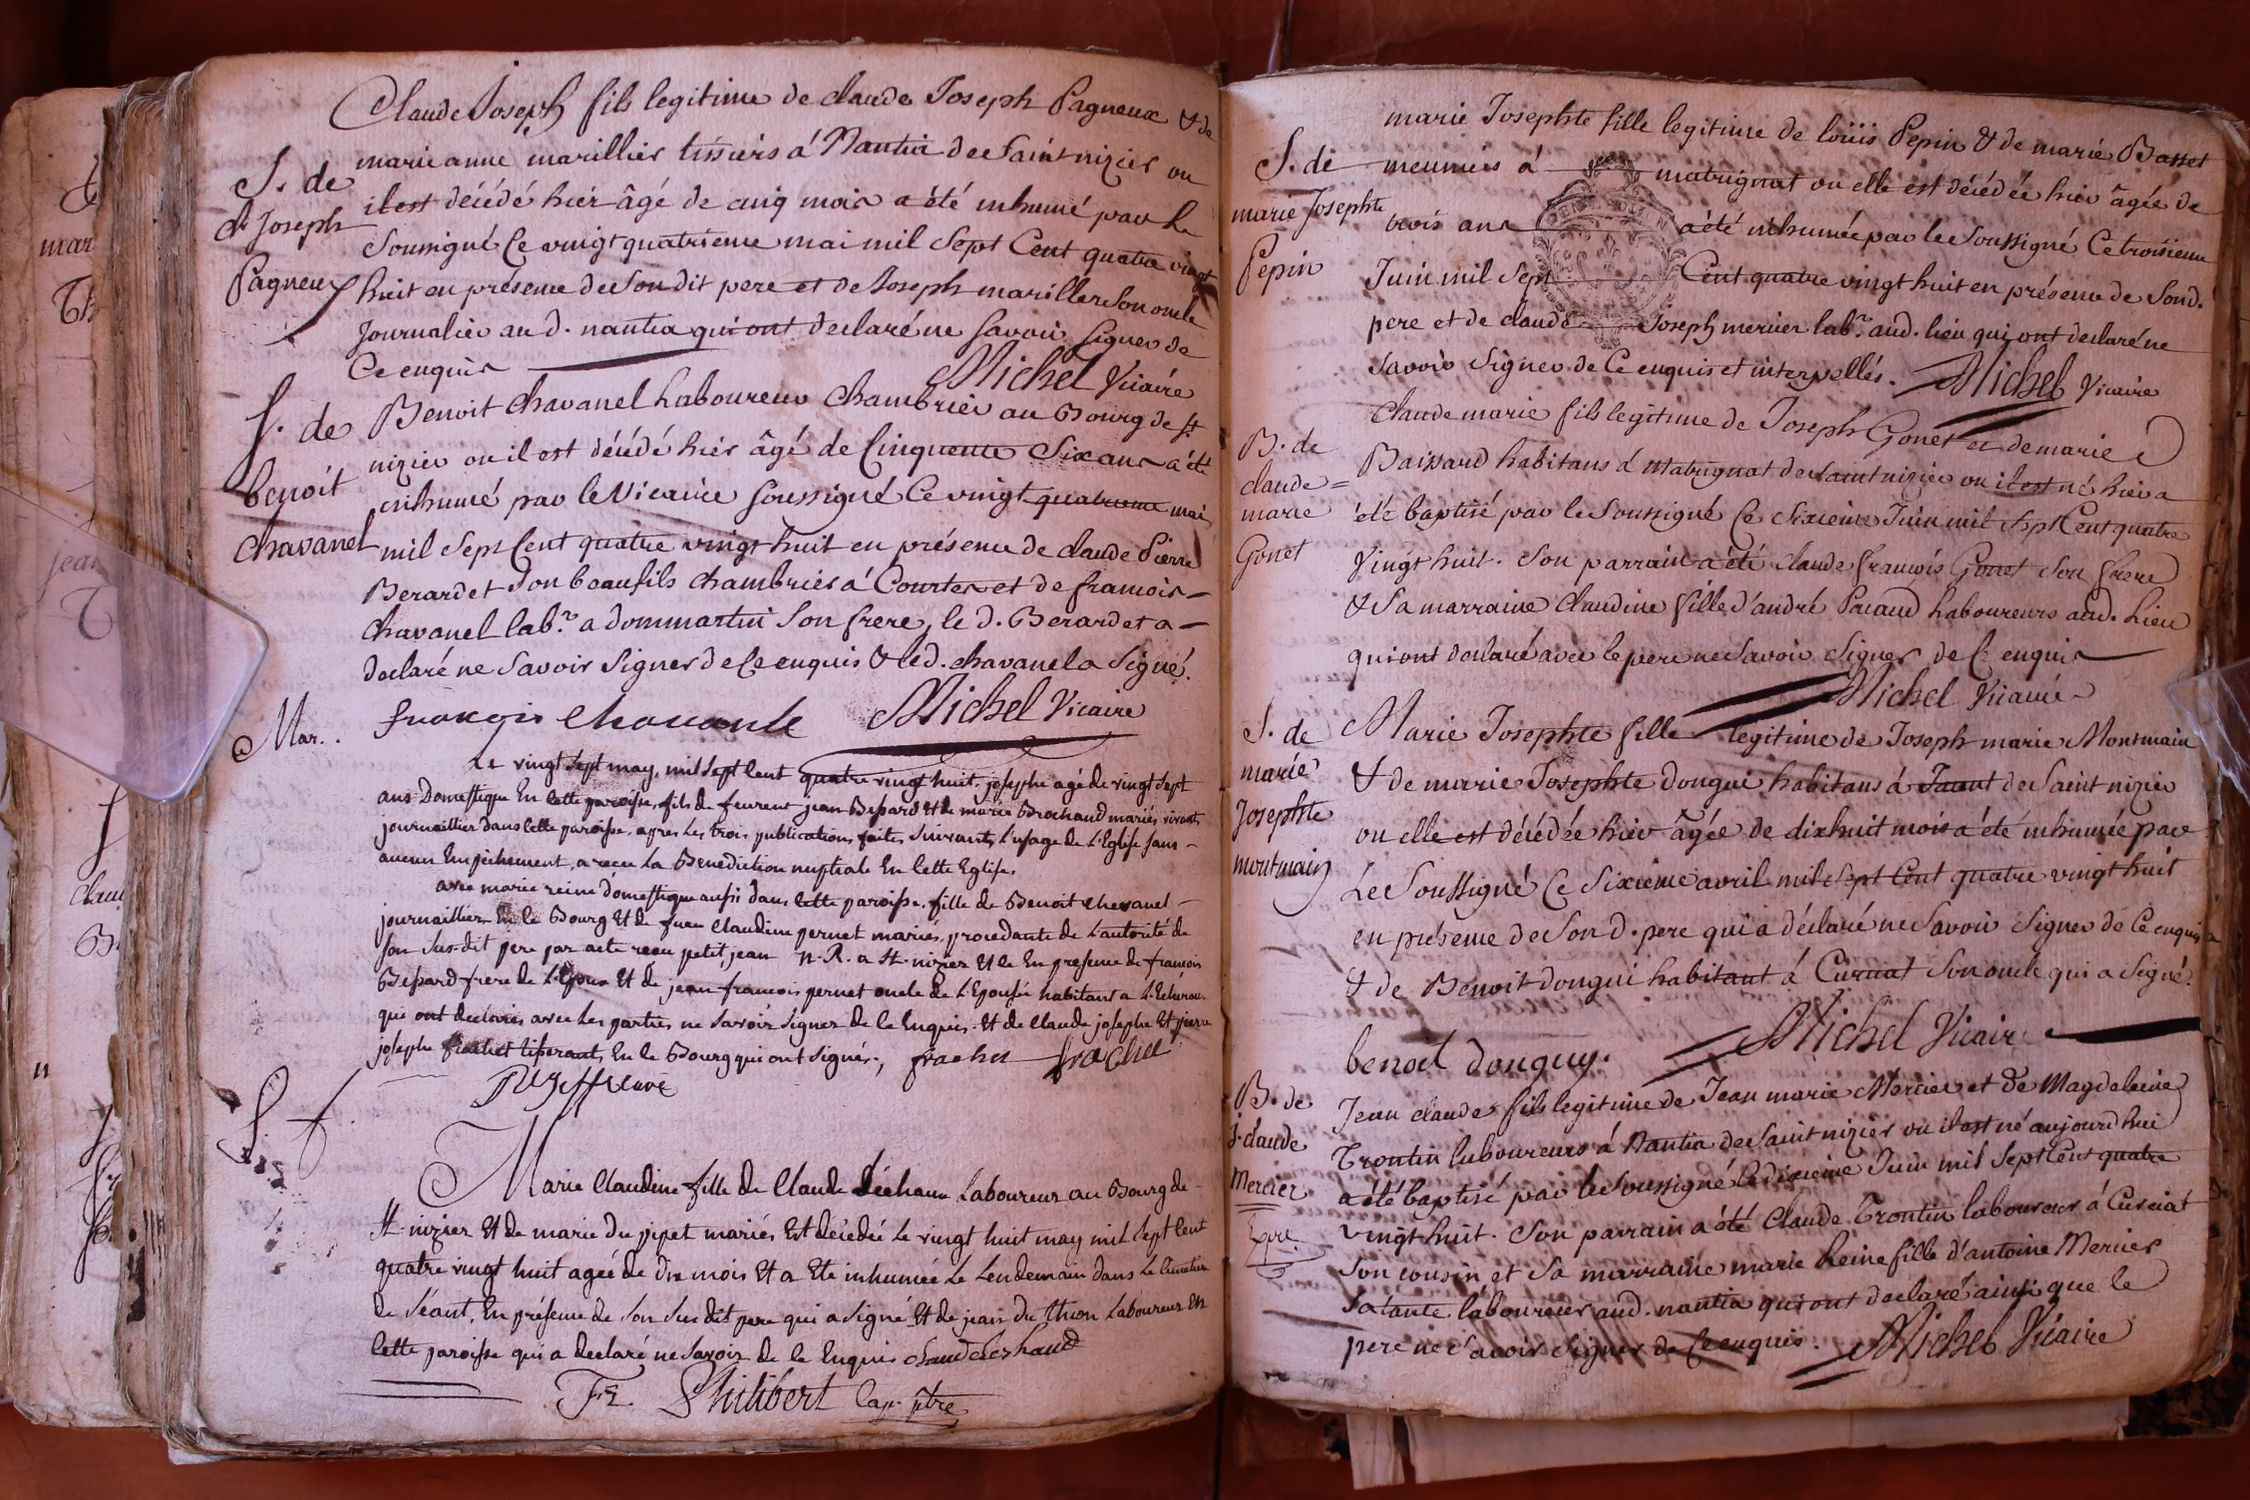 Claude Joseph fils legitime de claude Joseph Pagneux & de
S. de
marie anne marillier tissiers á Nantia de Saint nizier ou
il est décédé hier âgé de cinq mois a été inhumé par le
cl Joseph
Soussigné Ce vingt quatrieme mai mil Sept Cent quatre vingt
Pagneux
huit en présence de Son dit pere et de Joseph mariller Son oncle
Journalier au d. nantia qui ont declaré ne Savoir Signer de
Ce enquis
Michel Vicaire
S. de
Benoit Chavanel Laboureur Chambrier au Bourg de St
nizier ou il est décédé hier âgé de Cinquante Six ans a été
benoit
inhumé par le Vicaire Soussigné Ce vingt quatrieme mai
chavanel
mil Sept Cent quatre vingt huit en présence de claude Pierre
Berardet Son beaufils chambrier á Courtes et de francois
Chavanel lab.r a dommartin Son frere, le d. Berardet a
declaré ne Savoir Signer de Ce enquis & le d. chavanel a Signé.
Mar.
Michel Vicaire
Le vingt Sept may, mil Sept Cent quatre vingt huit, josephe agé de vingt Sept
ans Domestique En Cette paroisse, fils de jean Bepard Et de marie Brochaud mariés vivants
journaillier dans Cette paroisse, apres Les trois publications faites Suivant L'usage de L'Eglise Sans
aucun Empêchement, a recu La Benediction nuptiale En Cette Eglise,
avec marie reine domestique aussi dans Cette paroisse, fille de Benoit Chevanel
journaillier En le Bourg Et de Claudine pernet mariés, procedante de L'autorité de
Son Sus-dit pere par acte recu petit jean N. R. a St. nizier Et Ce En presence de francois
Bepard frere de L'Epoux Et de jean francois pernet oncle de L'Epousée habitans a
qui ont declarés avec Les parties ne Savoir Signer de Ce Enquis. Et de Claude josephe Et pierre
josephe En le Bourg qui ont Signés.,
S.
Marie Claudine fille de Claude Léchaux Laboureur au Bourg de
St. nizier Et de marie du pipet mariés Est décédée Le vingt huit may mil Sept Cent
quatre vingt huit agée de dix mois Et a Eté inhumée Le Lendemain dans Le Cimetiere
de Séant, En présence de Son Sus dit pere qui a Signé Et de jean du thion Laboureur En
Cette paroisse qui a declaré ne Savoir de Ce Enquis
Fr. Philibert Cap. ptre
marie Josephte fille legitime de loüis Pepin & de marie Basset
S. de
meuniers á matrignat ou elle est décédée hier âgée de
marie Josephte
trois ans a été inhumée par le Soussigné Ce troisieme
Pepin
Juin mil Sept Cent quatre vingt huit en présence de Son d.
pere et de claude Joseph mercier lab.r aud. lieu qui ont declaré ne
Savoir Signer de Ce enquis et interpellés.
Michel Vicaire
Claude marie fils legitime de Joseph Gonet et de marie
B. de
Baissard habitans á Matrignat de Saint nizier ou il est né hier a
claude=
marie
été baptisé par le Soussigné Ce Sixieme Juin mil Sept Cent quatre
Gonet
Vingt huit. Son parrain a été claude françois Gonet Son frere
& Sa marraine Claudine fille d'andré Pacaud Laboureurs aud. Lieu
qui ont declaré avec le pere ne Savoir Signer de Ce enquis
Michel Vicaire
S. de
Marie Josephte fille legitime de Joseph marie Montmain
marie
& de marie Josephte dongui habitans á de Saint nizier
Josephte
ou elle est décédée hier âgée de dixhuit mois a été inhumée par
montmain
Le Soussigné Ce Sixieme avril mil Sept Cent quatre vingt huit
en présence de Son d. pere qui a déclaré ne Savoir Signer de Ce enquis
& de Benoit dongui habitant á Curciat Son oncle qui a Signé.
benoit donguy.
Michel Vicaire
B. de
Jean claude fils legitime de Jean marie Mercier et de Magdeleine
J. claude
Trontin laboureurs á Nantia de Saint nizier ou il est né aujourdhui
Mercier
a été baptisé par le Soussigné le dixieme Juin mil Sept Cent quatre
vingt huit. Son parrain a été Claude Trontin laboureur á Curciat
Son cousin et Sa marraine marie Reine fille d'antoine Mercier
Sa tante laboureur aud. nantia qui ont declaré ainsi que le
pere ne Savoir Signer de Ce enquis.
Michel Vicaire